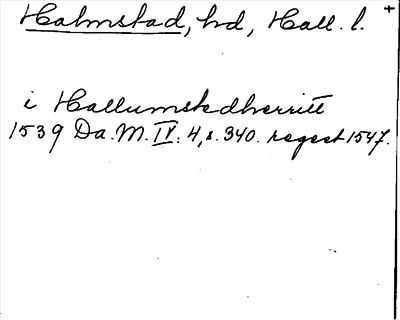 Halmstad, hd, Hall. l. +
i Hallumstedherritt
1539 Da. M. IV: 4, s. 340. regest 1547.